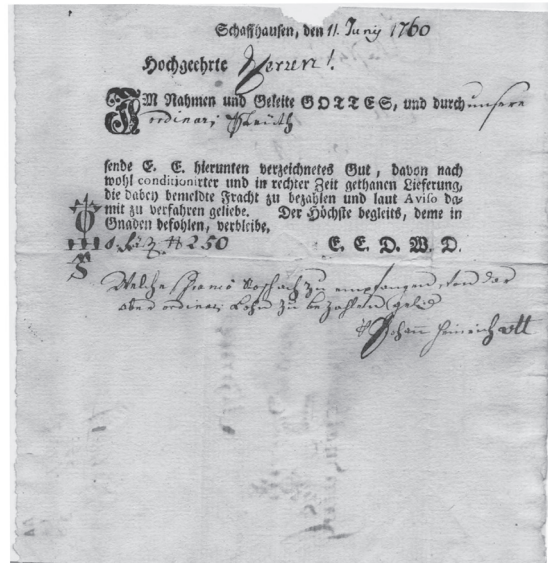 Schaffhausen, den 11. Juny 1760
Hochgeehrte Herren!
IM Nahmen und Geleite GOTTES, und durch unsere
ordinari
sende E. E. hierunten verzeichnetes Gut, davon nach
wohl conditionirter und in rechter Zeit gethanen Lieferung,
die dabey bemeldte Fracht zu bezahlen und laut Aviso da-
mit zu verfahren geliebe. Der Höchste begleits, deme in
Gnaden befohlen, verbleibe,
250 E. E. D. W. D.
Welche Franco zu empfangen, von dar
aber ordinari Lohn zu bezahlen
Johann Heinrich Ott